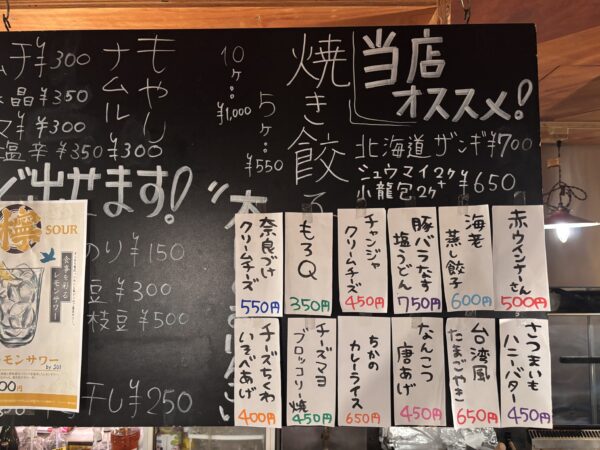 当店
オススメ!
北海道 ザンギ ¥700
シュウマイ2ケ+
小龍包2ケ
¥650
焼き餃子
5ケ:¥550
10ケ:¥1,000
もやし
ナムル
¥300
¥300
¥350
¥300
塩辛 ¥350
ぐ出せます!
のり ¥150
豆 ¥300
枝豆 ¥500
干し ¥250
赤ウィンナーさん
500円
海老
蒸し餃子
600円
豚バラなす
塩うどん
750円
チャンジャ
クリームチーズ
450円
もろQ
350円
奈良づけ
クリームチーズ
550円
さつまいも
ハニーバター
450円
台湾風
たまごやき
650円
なんこつ
唐あげ
450円
ちかの
カレーライス
650円
チーズマヨ
ブロッコリー焼
450円
チーズちくわ
いそべあげ
400円
檸
SOUR
食事を彩る
レモンサワー
モンサワー
by SOI
00円